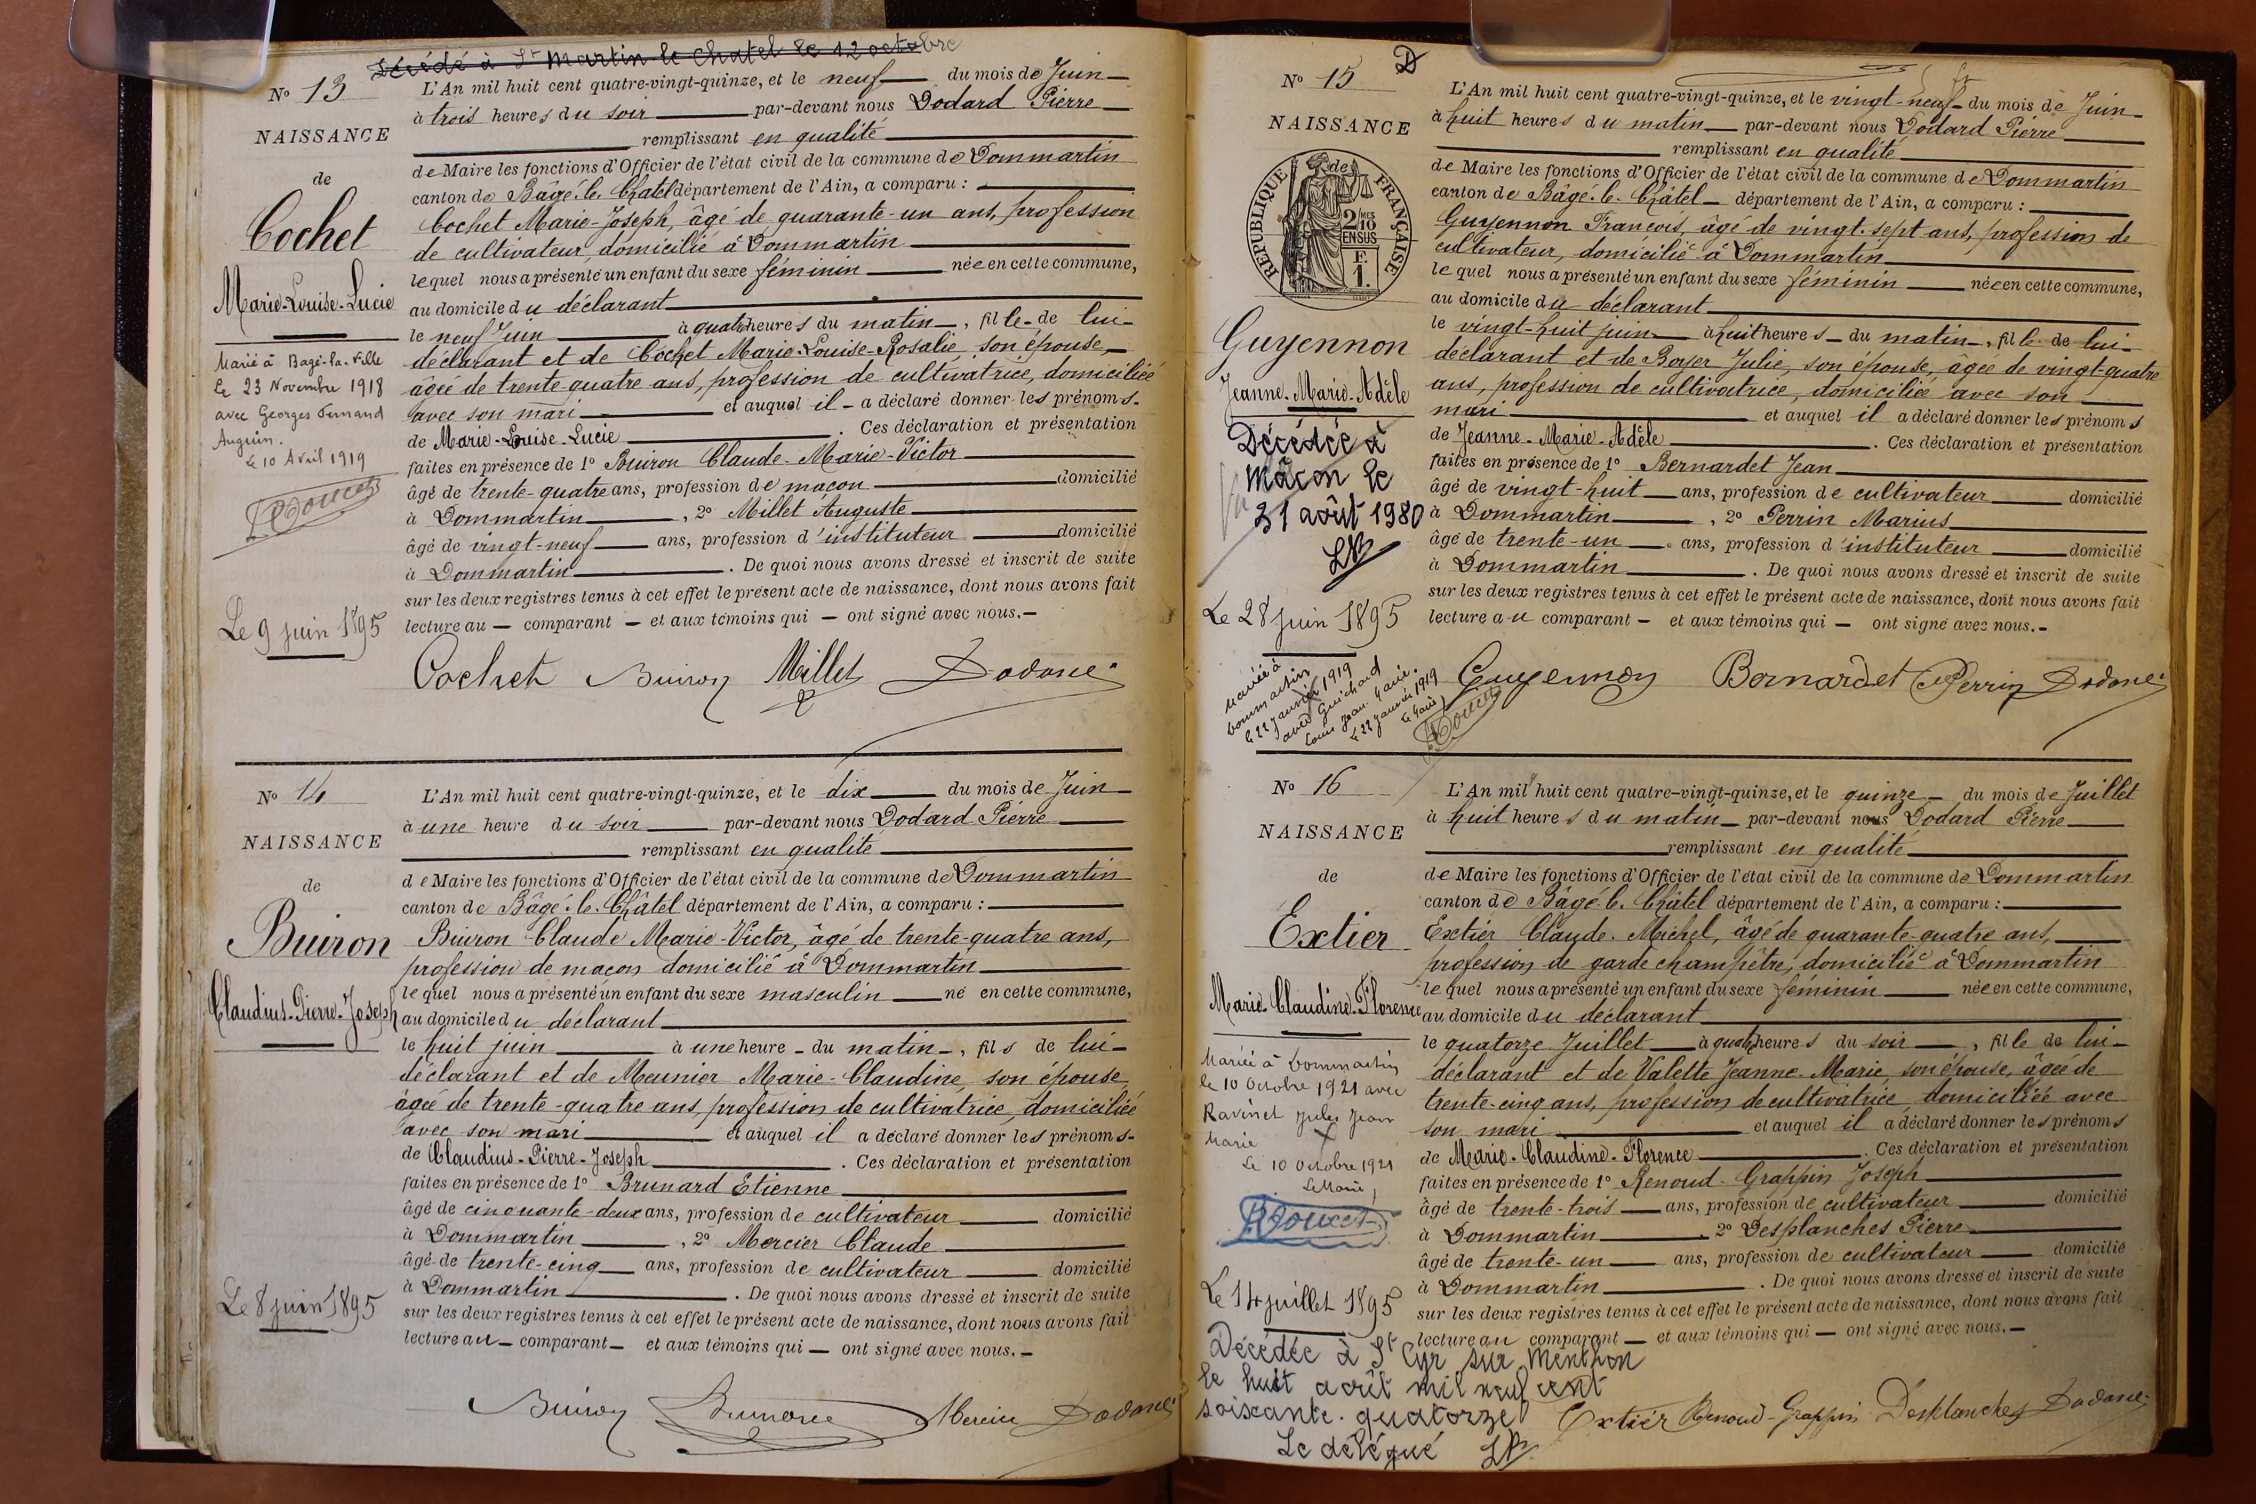 Décédé à St Martin le Chatel le 12 octobre
No 13
NAISSANCE
de
Cochet
Marie-Louise-Lucie
Marié à Bagé-la-Ville
le 23 Novembre 1918
avec Georges Fernand
Auguin.
le 10 Avril 1919
Le 9 juin 1895
L'An mil huit cent quatre-vingt-quinze, et le neuf du mois de Juin
à trois heures du soir par-devant nous Dodard Pierre
remplissant en qualité
de Maire les fonctions d'Officier de l'état civil de la commune de Dommartin
canton de Bâgé-le-Châtel département de l'Ain, a comparu :
Cochet Marie-Joseph, âgé de quarante-un ans, profession
de cultivateur, domicilié à Dommartin
lequel nous a présenté un enfant du sexe féminin née en cette commune,
au domicile du déclarant
le neuf Juin à quatre heures du matin, fille de lui
déclarant et de Cochet Marie-Louise-Rosalie, son épouse,
âgée de trente-quatre ans, profession de cultivatrice, domiciliée
avec son mari et auquel il a déclaré donner les prénoms
de Marie-Louise-Lucie. Ces déclaration et présentation
faites en présence de 1o Buiron Claude-Marie-Victor
âgé de trente-quatre ans, profession de maçon domicilié
à Dommartin, 2o Millet Auguste
âgé de vingt-neuf ans, profession d'instituteur domicilié
à Dommartin. De quoi nous avons dressé et inscrit de suite
sur les deux registres tenus à cet effet le présent acte de naissance, dont nous avons fait
lecture au comparant et aux témoins qui ont signé avec nous.
Cochet Buiron Millet Dodard
No 14
NAISSANCE
de
Buiron
Claudius-Pierre-Joseph
Le 8 juin 1895
L'An mil huit cent quatre-vingt-quinze, et le dix du mois de Juin
à une heure du soir par-devant nous Dodard Pierre
remplissant en qualité
de Maire les fonctions d'Officier de l'état civil de la commune de Dommartin
canton de Bâgé-le-Châtel département de l'Ain, a comparu :
Buiron Claude Marie-Victor, âgé de trente-quatre ans,
profession de maçon domicilié à Dommartin
lequel nous a présenté un enfant du sexe masculin né en cette commune,
au domicile du déclarant
le huit juin à une heure du matin, fils de lui
déclarant et de Meunier Marie-Claudine, son épouse,
âgée de trente-quatre ans, profession de cultivatrice, domiciliée
avec son mari et auquel il a déclaré donner les prénoms
de Claudius-Pierre-Joseph. Ces déclaration et présentation
faites en présence de 1o Brunard Etienne
âgé de cinquante-deux ans, profession de cultivateur domicilié
à Dommartin, 2o Mercier Claude
âgé de trente-cinq ans, profession de cultivateur domicilié
à Dommartin. De quoi nous avons dressé et inscrit de suite
sur les deux registres tenus à cet effet le présent acte de naissance, dont nous avons fait
lecture au comparant et aux témoins qui ont signé avec nous.
Buiron Brunard Mercier Dodard
D
No 15
NAISSANCE
de
RÉPUBLIQUE FRANÇAISE
2/10 MES
EN SUS
F.
1.
Guyennon
Jeanne-Marie-Adèle
Décédée à
Mâcon le
31 août 1980
Le 28 juin 1895
Mariée à
Dommartin
le 22 Janvier 1919
avec Guichard
Louis Jean-Marie.
Le 22 Janvier 1919
Le Maire
L'An mil huit cent quatre-vingt-quinze, et le vingt-neuf du mois de Juin
à huit heures du matin par-devant nous Dodard Pierre
remplissant en qualité
de Maire les fonctions d'Officier de l'état civil de la commune de Dommartin
canton de Bâgé-le-Châtel département de l'Ain, a comparu :
Guyennon François, âgé de vingt-sept ans, profession de
cultivateur, domicilié à Dommartin
lequel nous a présenté un enfant du sexe féminin née en cette commune,
au domicile du déclarant
le vingt-huit juin à huit heures du matin, fille de lui
déclarant et de Boyer Julie, son épouse, âgée de vingt-quatre
ans, profession de cultivatrice, domiciliée avec son
mari et auquel il a déclaré donner les prénoms
de Jeanne-Marie-Adèle. Ces déclaration et présentation
faites en présence de 1o Bernardet Jean
âgé de vingt-huit ans, profession de cultivateur domicilié
à Dommartin, 2o Perrin Marius
âgé de trente-un ans, profession d'instituteur domicilié
à Dommartin. De quoi nous avons dressé et inscrit de suite
sur les deux registres tenus à cet effet le présent acte de naissance, dont nous avons fait
lecture au comparant et aux témoins qui ont signé avec nous.
Guyennon Bernardet Perrin Dodard
No 16
NAISSANCE
de
Extier
Marie-Claudine-Florence
Mariée à Dommartin
le 10 Octobre 1921 avec
Ravinet Jules Jean
Marie
Le 10 Octobre 1921
Le Maire,
Le 14 juillet 1895
Décédée à St Cyr sur Menthon
le huit août mil neuf cent
soixante-quatorze
Le délégué
L'An mil huit cent quatre-vingt-quinze, et le quinze du mois de Juillet
à huit heures du matin par-devant nous Dodard Pierre
remplissant en qualité
de Maire les fonctions d'Officier de l'état civil de la commune de Dommartin
canton de Bâgé-le-Châtel département de l'Ain, a comparu :
Extier Claude-Michel, âgé de quarante-quatre ans,
profession de garde champêtre, domicilié à Dommartin
lequel nous a présenté un enfant du sexe féminin née en cette commune,
au domicile du déclarant
le quatorze Juillet à quatre heures du soir, fille de lui
déclarant et de Valette Jeanne-Marie, son épouse, âgée de
trente-cinq ans, profession de cultivatrice, domiciliée avec
son mari et auquel il a déclaré donner les prénoms
de Marie-Claudine-Florence. Ces déclaration et présentation
faites en présence de 1o Renoud-Grappin Joseph
âgé de trente-trois ans, profession de cultivateur domicilié
à Dommartin, 2o Desplanches Pierre
âgé de trente-un ans, profession de cultivateur domicilié
à Dommartin. De quoi nous avons dressé et inscrit de suite
sur les deux registres tenus à cet effet le présent acte de naissance, dont nous avons fait
lecture au comparant et aux témoins qui ont signé avec nous.
Extier Renoud-Grappin Desplanches Dodard